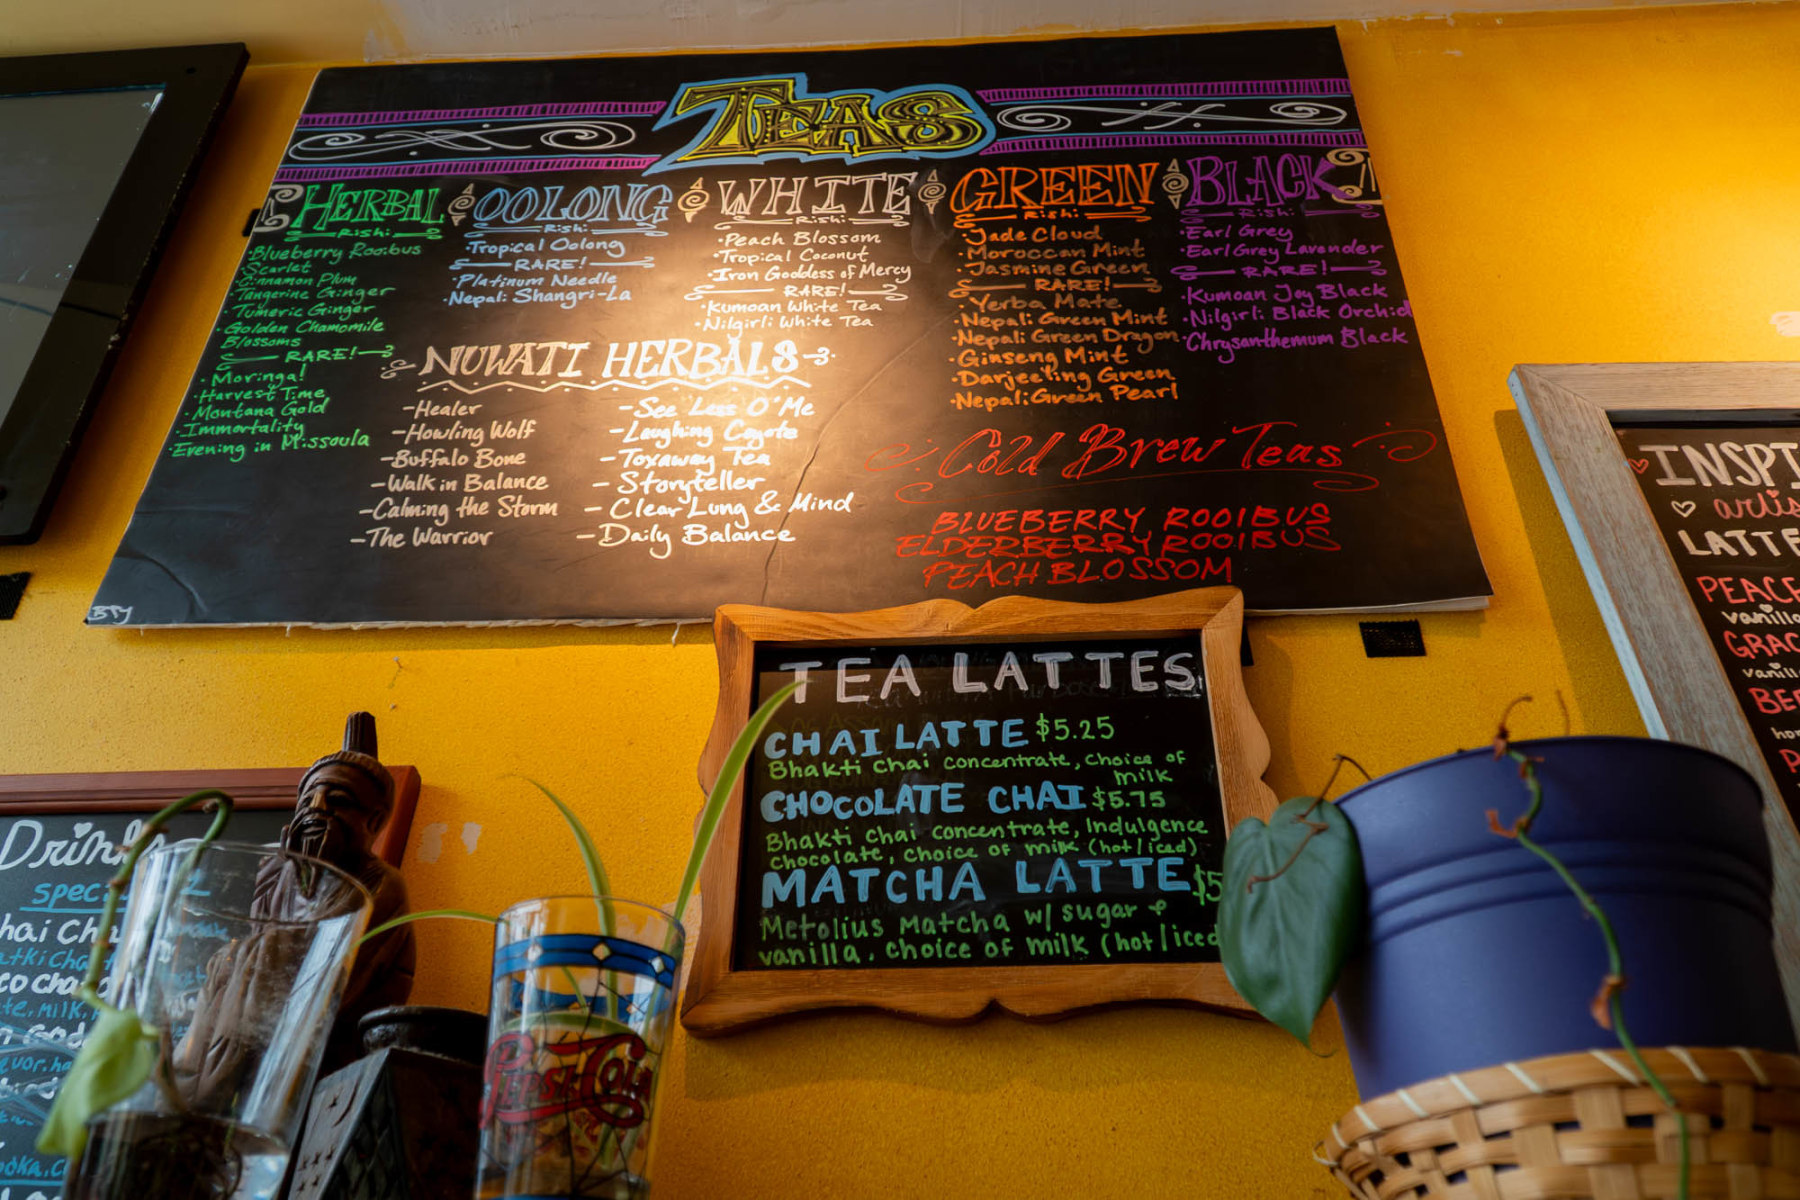 TEAS
HERBAL
Rishi
Blueberry Rooibus
Scarlet
Cinnamon Plum
Tangerine Ginger
Tumeric Ginger
Golden Chamomile
Blossoms
RARE!
Moringa!
Harvest Time
Montana Gold
Immortality
Evening in Missoula
OOLONG
Rishi
Tropical Oolong
RARE!
Platinum Needle
Nepali Shangri-La
WHITE
Rishi
Peach Blossom
Tropical Coconut
Iron Goddess of Mercy
RARE!
Kumoan White Tea
Nilgirli White Tea
GREEN
Rishi
Jade Cloud
Moroccan Mint
Jasmine Green
RARE!
Yerba Mate
Nepali Green Mint
Nepali Green Dragon
Ginseng Mint
Darjeeling Green
Nepali Green Pearl
BLACK
Rishi
Earl Grey
Earl Grey Lavender
RARE!
Kumoan Joy Black
Nilgirli Black Orchid
Chrysanthemum Black
NUWATI HERBALS
-Healer
-Howling Wolf
-Buffalo Bone
-Walk in Balance
-Calming the Storm
-The Warrior
-See Less O' Me
-Laughing Coyote
-Toxaway Tea
-Storyteller
-Clear Lung & Mind
-Daily Balance
Cold Brew Teas
BLUEBERRY ROOIBUS
ELDERBERRY ROOIBUS
PEACH BLOSSOM
TEA LATTES
CHAI LATTE $5.25
Bhakti Chai concentrate, choice of
milk
CHOCOLATE CHAI $5.75
Bhakti Chai concentrate, Indulgence
chocolate, choice of milk (hot/iced)
MATCHA LATTE $5
Metolius Matcha w/ sugar &
vanilla, choice of milk (hot/iced
INSPI
artis
LATTE
PEACE
vanilla
GRAC
vanill
BEE
hon
P
Drinks
spec
hai Cha